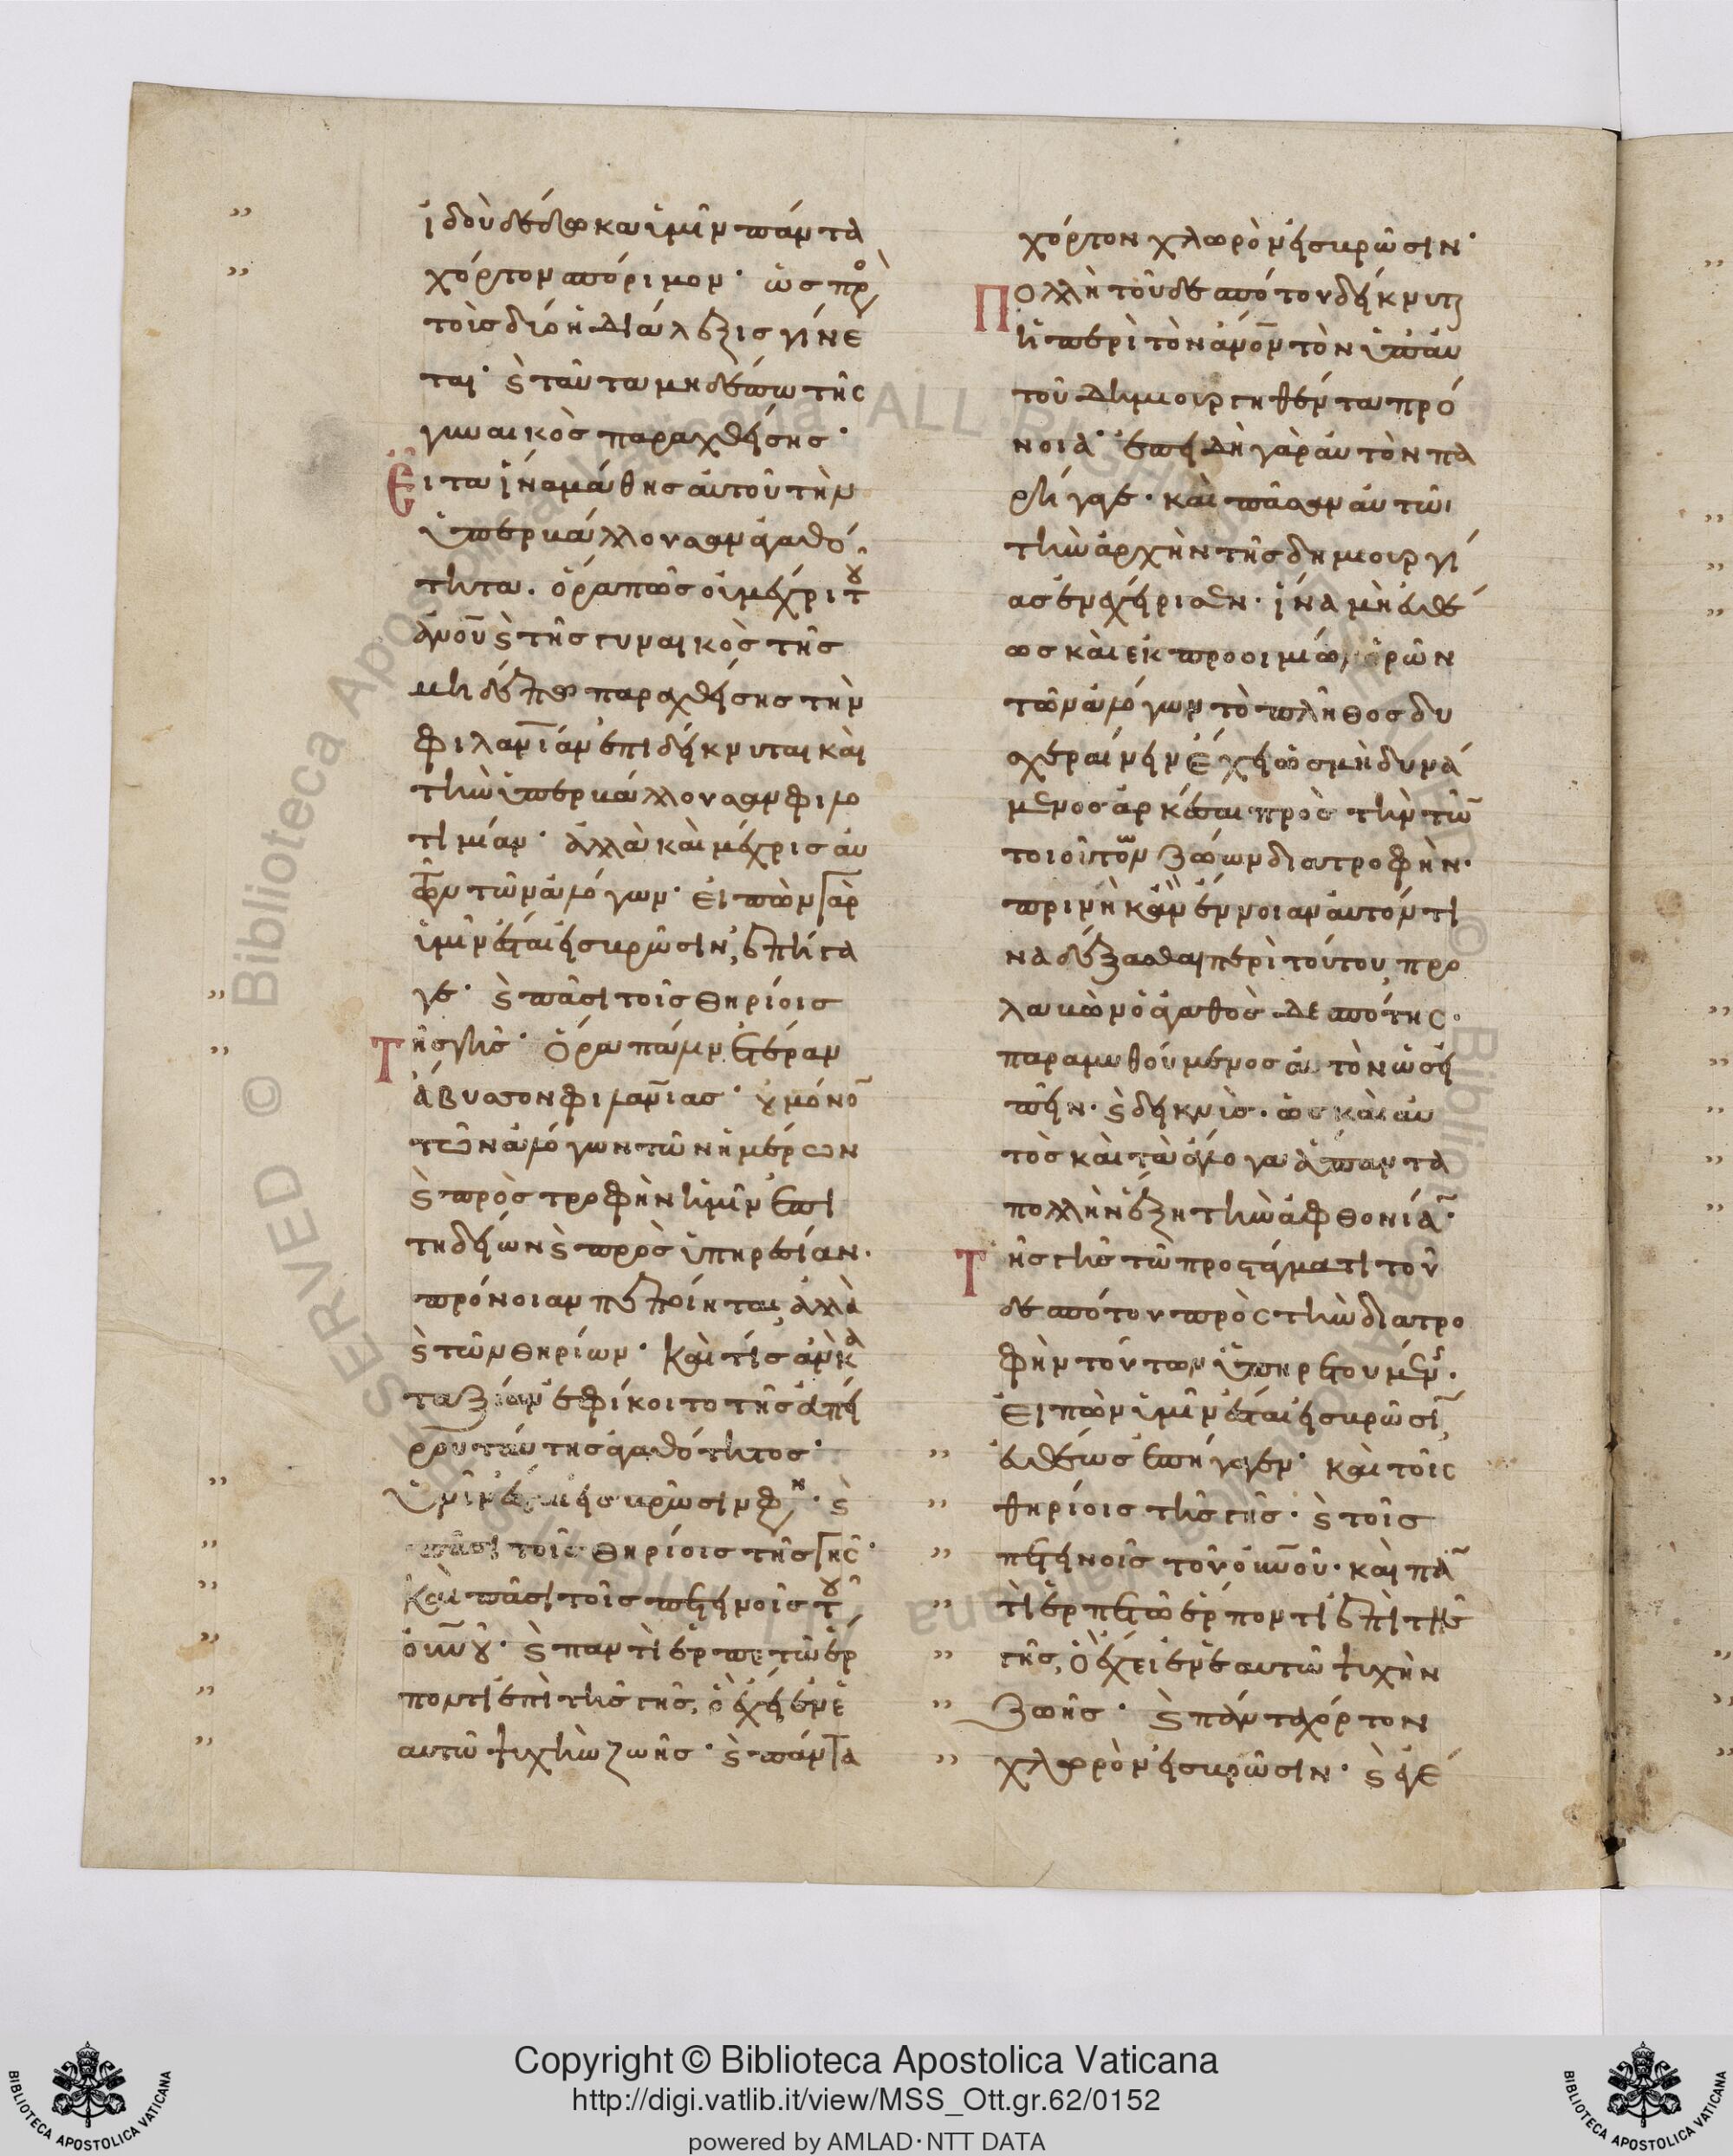 ἰδοὺ δέδωκα ὑμῖν πάντα
χόρτον σπόριμον· ὡς πρ
τοῖς δύο ἡ διάλεξις γίνε
ται· καὶ ταῦτα μηδέπω τῆς
γυναικὸς παραχθείσης·
Εἶτα ἵνα μάθῃς αὐτοῦ τὴν
ὑπερβάλλουσαν ἀγαθό
τητα. ὅρα πῶς οὐ μέχρι τοῦ
ἀνου καὶ τῆς γυναικὸς τῆς
μηδέπω παραχθείσης τὴν
φιλανιαν ἐπιδείκνυται καὶ
τὴν ὑπερβάλλουσαν φιλο
τιμίαν· ἀλλὰ καὶ μέχρις αυ
τῶν ἀλόγων· εἰπὼν γὰρ
ὑμῖν ἔσται εἰς βρῶσιν, ἐπήγα
γε· καὶ πᾶσι τοῖς θηρίοις
τῆς γῆς· Ὅρα πάλιν ἑτέραν
ἄβυσσον φιλανιας· οὐ μόνο
τῶν ἀλόγων τῶν ἡμέρων
καὶ πρὸς τροφὴν ἡμῖν ἐπι
τηδείων καὶ πρὸς ὑπηρεσίαν.
πρόνοιαν πεποίηται, ἀλλὰ
καὶ τῶν θηρίων· Καὶ τίς ἂν κα
ταξίαν ἐφίκοιτο τῆς ἀπεί
ρου ταύτης ἀγαθότητος·
Ὑμῖν ἔσται εἰς βρῶσιν φη· καὶ
πᾶσι τοῖς θηρίοις τῆς γῆς·
Καὶ πᾶσι τοῖς πετεινοῖς τοῦ
οὐνου· καὶ παντὶ ἑρπετῷ ἕρ
ποντι ἐπὶ τῆς γῆς, ὃ ἔχει ἐν ἑ
αυτῷ ψυχὴν ζωῆς· καὶ πάντα
χόρτον χλωρὸν εἰς βρῶσιν·
Πολλὴ τοῦ δεσπότου δείκνυται
ἡ περὶ τὸν ἀνον τὸν ὑπ αυ
τοῦ δημιουργηθέντα πρό
νοια· ἐπειδὴ γὰρ αὐτὸν πα
ρήγαγε· καὶ πᾶσαν αὐτῶι
τὴν ἀρχὴν τῆς δημιουργί
ας ἐνεχείρισεν· ἵνα μὴ εὐθέ
ως καὶ ἐκ προοιμίων ὁρῶν
τῶν ἀλόγων τὸ πλῆθος δυ
σχεραίνειν ἔχει ὡς μὴ δυνά
μενος ἀρκέσαι πρὸς τὴν τῶ
τοιούτων ζώων διατροφὴν·
πρινὴ καν ἔννοιαν αὐτόν τι
να δέξασθαι περὶ τούτου, προ
λαβὼν ὁ ἀγαθὸς δεσπότης·
παραμυθούμενος αὐτὸν ὡσεὶ
πεῖν· καὶ δεικνὺς. ὡς καὶ αυ
τὸς καὶ τὰ ἄλογα ἅπαντα
πολλὴν ἕξει τὴν ἀφθονία·
Τῆς γῆς τῷ προστάγματι τοῦ
δεσπότου πρὸς τὴν διατρο
φὴν τούτων ὑπηρετουμέν·
Εἰπὼν ὑμῖν ἔσται εἰς βρῶσι,
εὐθέως ἐπήγαγεν· καὶ τοῖς
θηρίοις τῆς γῆς· καὶ τοῖς
πετεινοῖς τοῦ οὐνου· καὶ πα
τὶ ἑρπετῷ ἕρποντι ἐπὶ τῆς
γῆς, ὃ ἔχει ἐν ἑαυτῷ ψυχὴν
ζωῆς· καὶ πάντα χόρτον
χλωρὸν εἰς βρῶσιν· καὶ ἐγέ
Copyright © Biblioteca Apostolica Vaticana
http://digi.vatlib.it/view/MSS_Ott.gr.62/0152
powered by AMLAD·NTT DATA